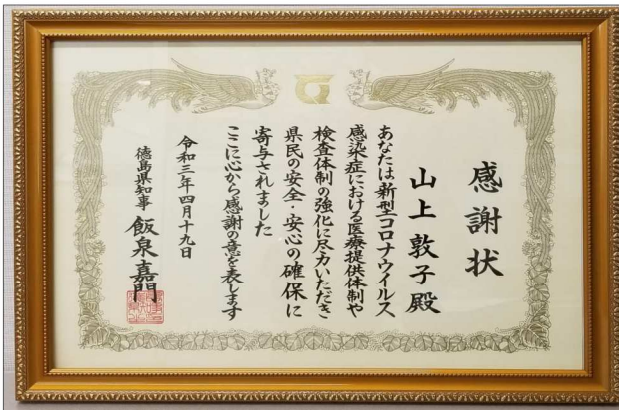 感謝状
山上敦子殿
あなたは新型コロナウイルス
感染症における医療提供体制や
検査体制の強化に尽力いただき
県民の安全・安心の確保に
寄与されました
ここに心から感謝の意を表します
令和三年四月十九日
徳島県知事 飯泉嘉門